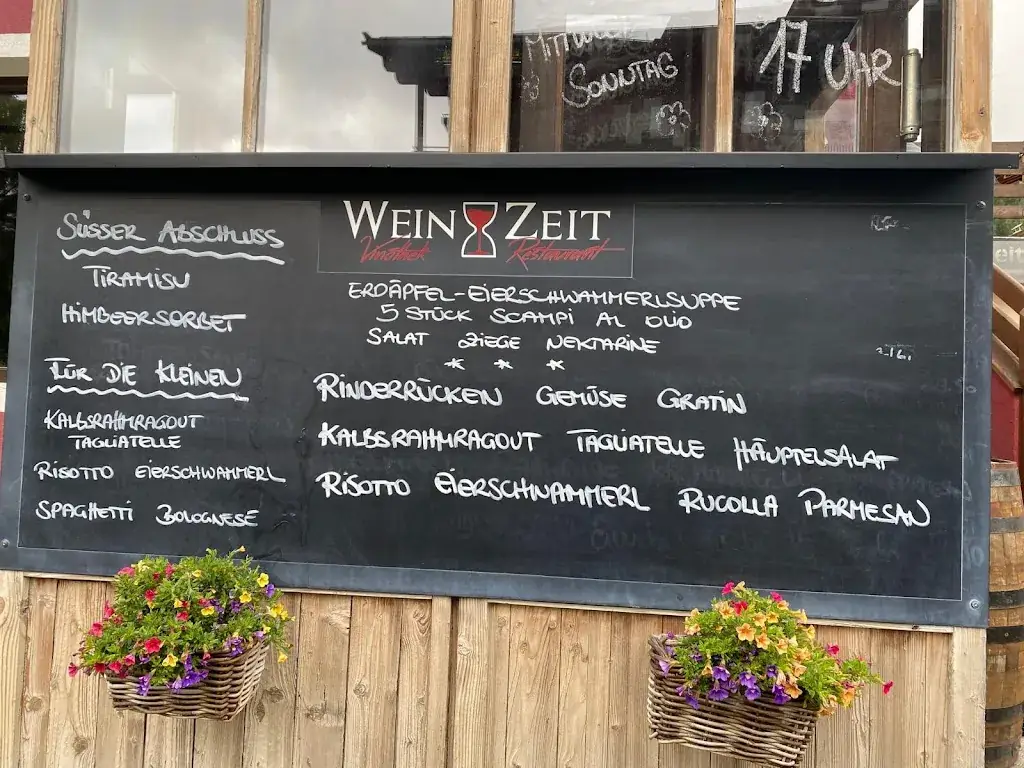 MITTWOCH
SONNTAG
17 UHR
SÜSSER ABSCHLUSS
TIRAMISU
HIMBEERSORBET
FÜR DIE KLEINEN
KALBSRAHMRAGOUT
TAGLIATELLE
RISOTTO EIERSCHWAMMERL
SPAGHETTI BOLOGNESE
WEIN ZEIT
Vinothek Restaurant
ERDÄPFEL-EIERSCHWAMMERLSUPPE
5 STÜCK SCAMPI AL OLIO
SALAT ZIEGE NEKTARINE
* * *
RINDERRÜCKEN GEMÜSE GRATIN
KALBSRAHMRAGOUT TAGLIATELLE HÄUPTELSALAT
RISOTTO EIERSCHWAMMERL RUCOLLA PARMESAN